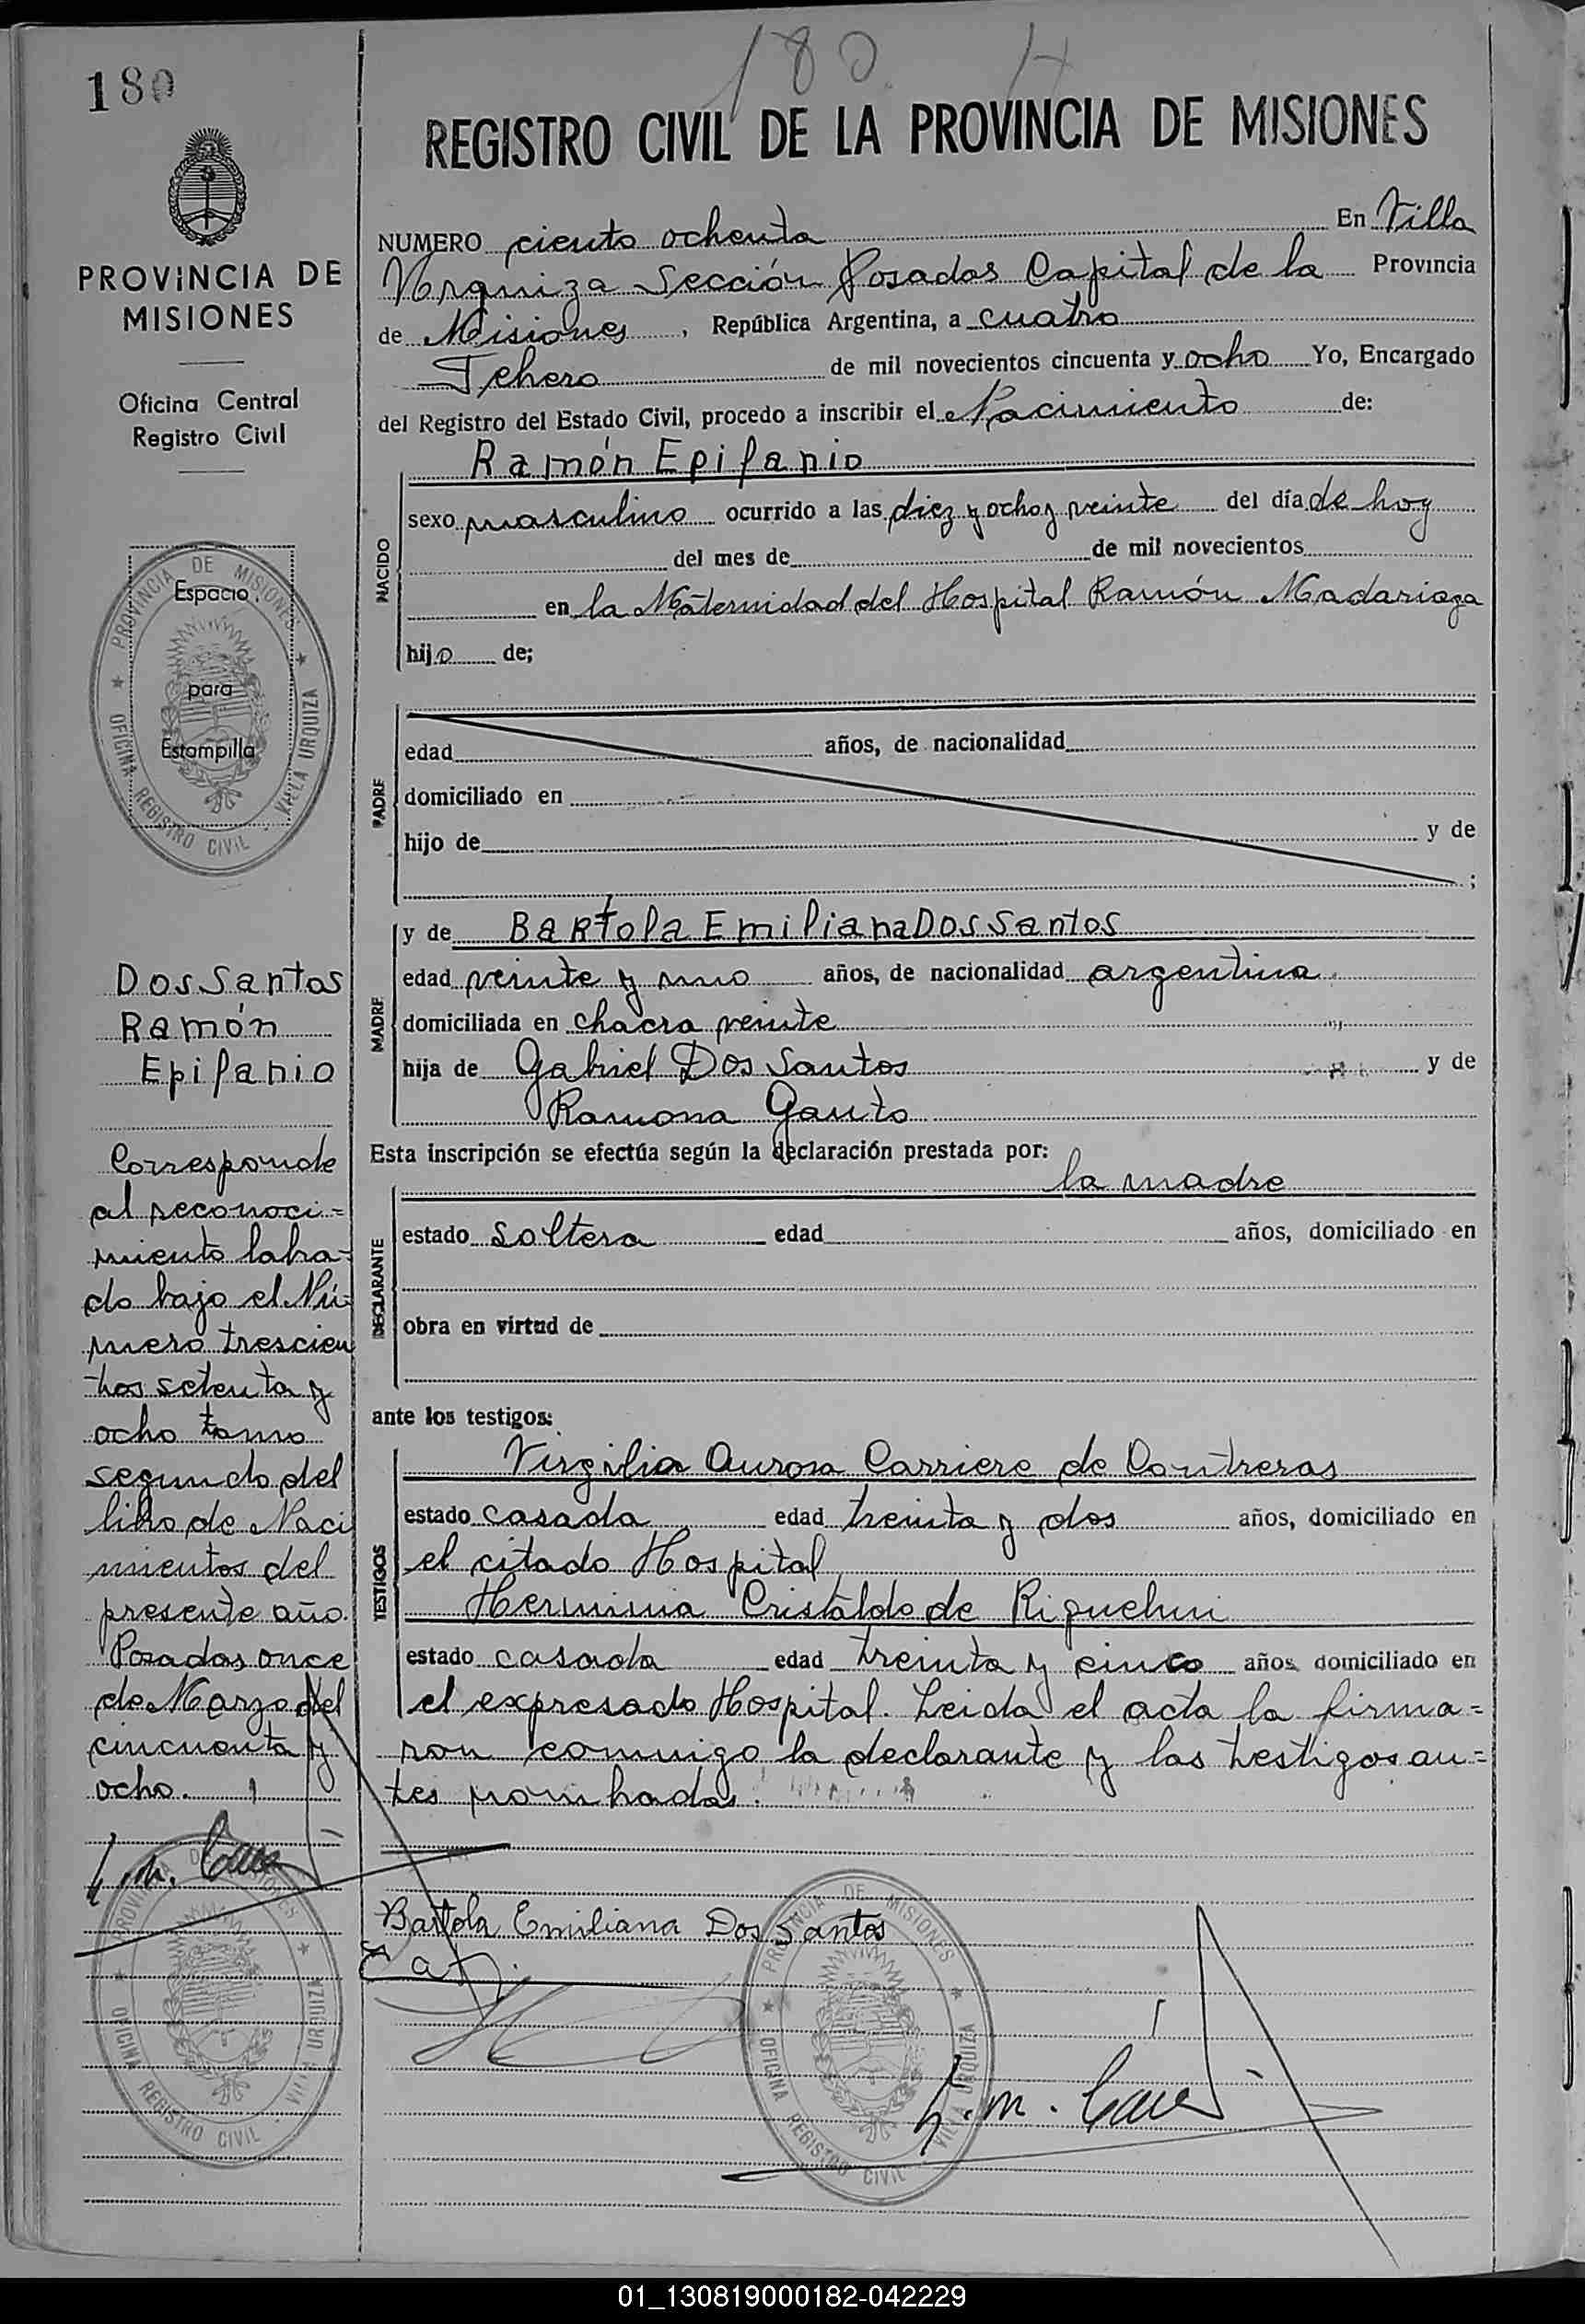 180 4
180
REGISTRO CIVIL DE LA PROVINCIA DE MISIONES
PROVINCIA DE
MISIONES
Oficina Central
Registro Civil
NUMERO ciento ochenta En Villa
Urquiza Sección Posadas Capital de la Provincia
de Misiones, República Argentina, a cuatro
Febrero de mil novecientos cincuenta y ocho Yo, Encargado
del Registro del Estado Civil, procedo a inscribir el Nacimiento de:
Ramón Epifanio
NACIDO
sexo masculino ocurrido a las diez y ocho y veinte del día de hoy
del mes de de mil novecientos
en la Maternidad del Hospital Ramón Madariaga
hijo de;
PADRE
edad años, de nacionalidad
domiciliado en
hijo de y de
;
MADRE
y de Bartola Emiliana Dos Santos
edad veinte y uno años, de nacionalidad argentina
domiciliada en chacra veinte
hija de Gabriel Dos Santos y de
Ramona Gauto
Esta inscripción se efectúa según la declaración prestada por:
la madre
DECLARANTE
estado soltera edad años, domiciliado en
obra en virtud de
ante los testigos:
TESTIGOS
Virgilia Aurora Carriere de Contreras
estado casada edad treinta y dos años, domiciliado en
el citado Hospital
Herminia Cristaldo de Riquelmi
estado casada edad treinta y cinco años domiciliado en
el expresado Hospital. Leida el acta la firma=
ron conmigo la declarante y las testigos an=
tes nombradas.
Bartola Emiliana Dos Santos
PROVINCIA DE MISIONES
OFICINA REGISTRO CIVIL VILLA URQUIZA
Espacio
para
Estampilla
PROVINCIA DE MISIONES
OFICINA REGISTRO CIVIL - VILLA URQUIZA
Dos Santos
Ramón
Epifanio
Corresponde
al reconoci=
miento labra-
do bajo el Nú-
mero trescien
tos setenta y
ocho tomo
segundo del
libro de Naci
mientos del
presente año.
Posadas once
de Marzo del
cincuenta y
ocho.
PROVINCIA DE MISIONES
OFICINA REGISTRO CIVIL - VILLA URQUIZA
01_130819000182-042229